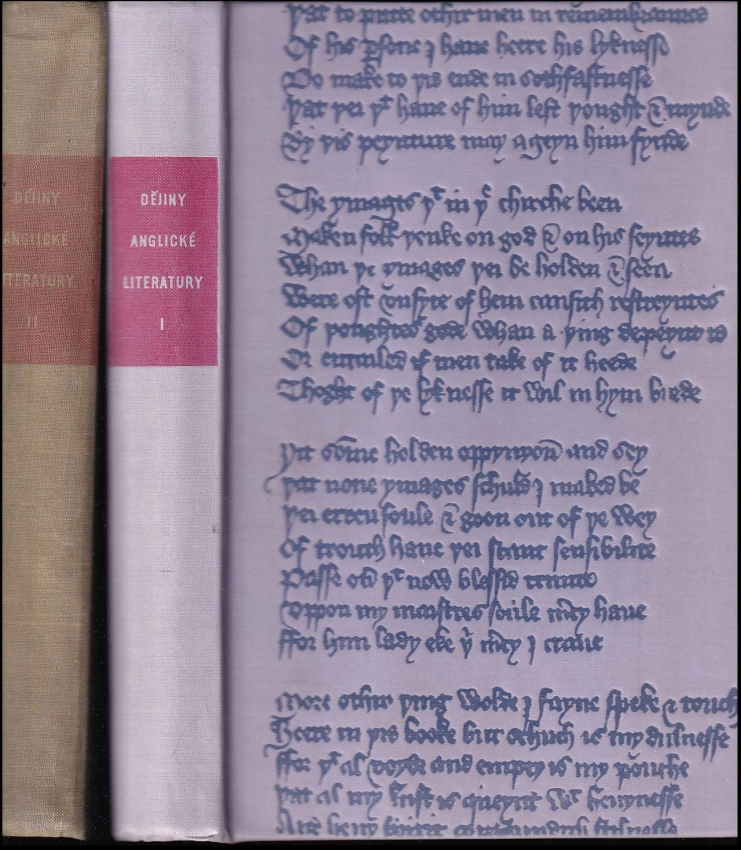 DĚJINY
ANGLICKÉ
ITERATURY
II
DĚJINY
ANGLICKÉ
LITERATURY
I
Þat to putte othir men in remembraunce
Of his ꝑsone I haue heere his lyknesse
Do make to þis ende in sothfastnesse
Þat þei þᵗ haue of him left þought & mynde
By þis peynture may ageyn him fynde
The ymages þᵗ in þᵉ chirche been
Maken folk þenke on god & on his seyntes
Whan þe ymages þei be holden & seen
Were oft vnsyte of hem causith restreyntes
Of þoughtes gode whan a þing depeynt is
Or entailed if men take of it heede
Thoght of þe lyknesse it wil in hym brede
Yit some holden oppynyon and sey
Þat none ymages schuld I maked be
Þei erren foule & goon out of þe wey
Of trouth haue þei scant sensibilite
Passe ou̇ þᵗ now blessid trinite
Vppon my maistres soule mẽy haue
ffor him lady eke þi mẽy I craue
More othir þing wolde I fayne speke & touch
Heere in þis booke but schuch is my dulnesse
ffor þᵗ al voyde and empty is my pouche
Þat al my lust is queynt wᵗ heuynesse
And heuy spirit comaundith stilnesse